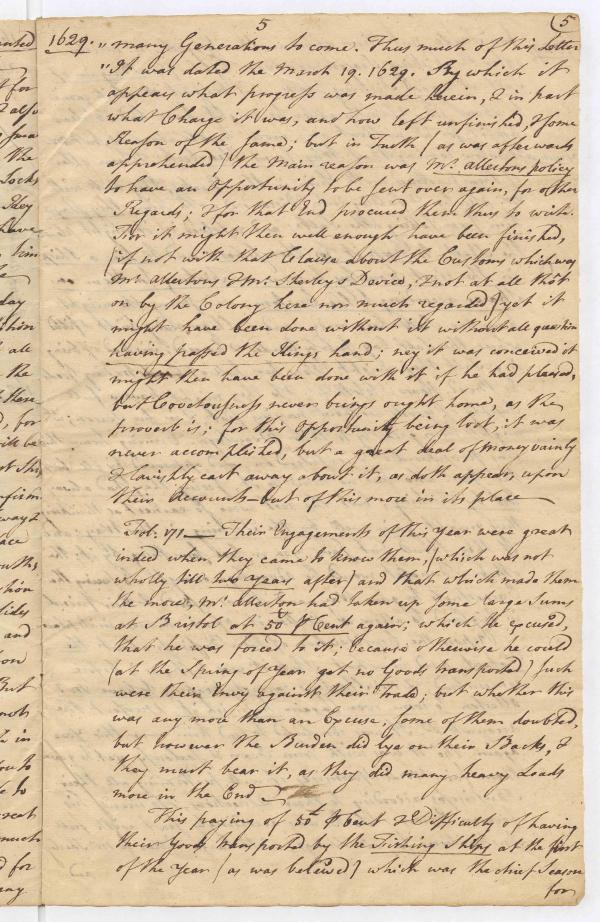 5
5
1629. " many Generations to come. Thus much of this Letter
" It was dated the March 19. 1629. By which it
appears what progress was made herein, & in part
what Charge it was, and how left unfinished, & some
Reason of the same; but in Truth (as was afterwards
apprehended) the Main reason was Mr. Allertons policy
to have an Opportunity to be sent over again, for other
Regards; & for that End procured them thus to write.
For it might then well enough have been finished,
(if not with that Clause about the Customs which was
Mr Allertons & Mr. Sherley's Device, & not at all thôt
on by the Colony here nor much regarded) yet it
might have been done without it without all question
having passed the Kings hand; ney it was conceived it
might then have been done with it if he had pleased,
but Covetousness never brings ought home, as the
proverb is; for this Opportunity being lost, it was
never accomplished, but a great deal of money vainly
& lavishly cast away about it, as doth appear, upon
their Accounts — but of this more in its place —
Fol: 171 — Their Engagements of this Year were great
indeed when they came to know them, (which was not
wholly till two years after) and that which made them
the more, Mr. Allerton had taken up some large Sums
at Bristol at 50 ⅌ Cent again; which He excused,
that he was forced to it; because otherwise he could
(at the Spring of Year get no Goods transported) such
were their Envy against their Trade; but whether this
was any more than an Excuse, some of them doubted,
but however the Burden did lye on their Backs, &
they must bear it, as they did many heavy Loads
more in the End
This paying of 50£ ⅌ Cent & Difficulty of having
their Goods transported by the Fishing Ships at the first
of the Year (as was believed) which was the chief Season
for